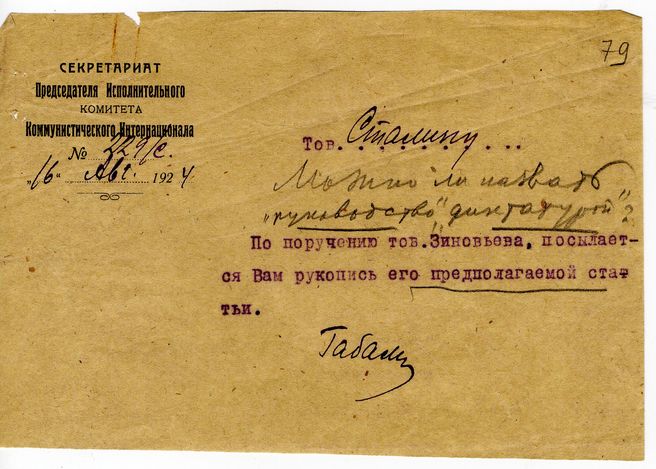 79
СЕКРЕТАРИАТ
Председателя Исполнительного
КОМИТЕТА
Коммунистического Интернационала
№ 229/с.
"16" Авг. 1924
Тов. Сталину . . .
Можно ли назвать
"руководство" "диктатурой"?
По поручению тов.Зиновьева, посылает-
ся Вам рукопись его предполагаемой стат
тьи.